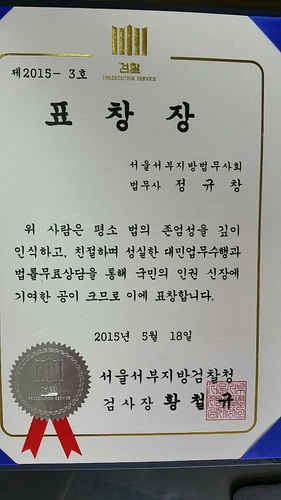 검찰
PROSECUTION SERVICE
제2015- 3호
표 창 장
서울서부지방법무사회
법무사 정 규 창
위 사람은 평소 법의 존엄성을 깊이
인식하고, 친절하며 성실한 대민업무수행과
법률무료상담을 통해 국민의 인권 신장에
기여한 공이 크므로 이에 표창합니다.
2015년 5월 18일
서울서부지방검찰청
검사장 황 철 규
검찰
PROSECUTION SERVICE